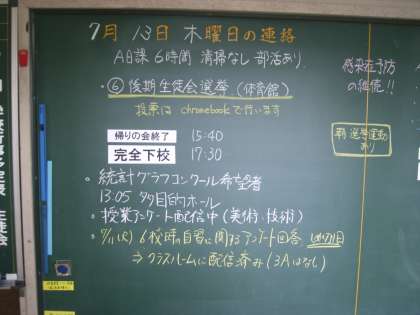 7月 13日 木曜日の連絡
A日課 6時間 清掃なし 部活あり
⑥後期生徒会選挙(体育館)
投票は chromebookで行います
帰りの会終了 15:40
完全下校 17:30
統計グラフコンクール希望者
13:05 多目的ホール
授業アンケート配信中(美術・技術)
7/11(火) 6校時の自習に関するアンケート回答
⇒クラスルームに配信済み(3Aはなし)
感染症予防
の継続!!
選挙運動
あり